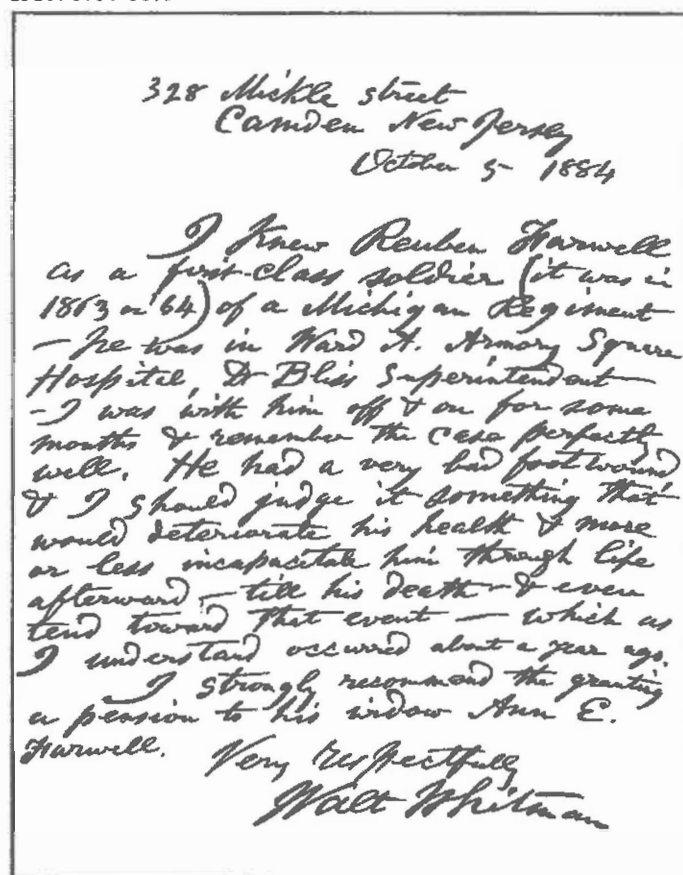 328 Mickle street
Camden New Jersey
October 5 1884
I knew Reuben Farwell
as a first-class soldier (it was in
1863 or '64) of a Michigan Regiment
— he was in Ward A. Armory Square
Hospital, Dr Bliss Superintendent —
— I was with him off & on for some
months & remember the case perfectly
well. He had a very bad foot wound
& I should judge it something that
would deteriorate his health & more
or less incapacitate him through life
afterward, — till his death — & even
tend toward that event — which as
I understand occurred about a year ago.
I strongly recommend the granting
a pension to his widow Ann E.
Farwell.
Very respectfully
Walt Whitman